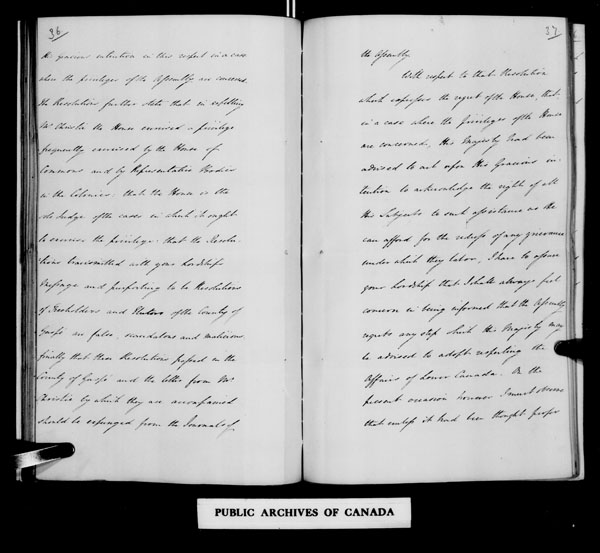 36
His Gracious intention in this respect in a case
where the privileges of the Assembly are concerned.
The Resolutions further state that in expelling
Mr Christie the House exercised a privilege
frequently exercised by the House of
Commons and by Representative Bodies
in the Colonies: that the House is the
sole Judge of the cases in which it ought
to exercise the privilege: that the Resolu-
tions transmitted with your Lordship's
Message and purporting to be Resolutions
of Freeholders and Electors of the County of
Gaspé are false, scandalous and malicious.
finally that these Resolutions passed in the
County of Gaspé and the letter from Mr
Christie by which they are accompanied
should be expunged from the Journals of
37
the Assembly.
With respect to that Resolution
which expresses the regret of the House, that
in a case where the Privileges of the House
are concerned, His Majesty had been
advised to act upon His Gracious in-
tention to acknowledge the right of all
His Subjects to such assistance as He
can afford for the redress of any grievance
under which they labor, I have to assure
your Lordship that I shall always feel
concern in being informed that the Assembly
regrets any step which His Majesty may
be advised to adopt respecting the
Affairs of Lower Canada. On the
present occasion however I must observe
that unless it had been thought proper
PUBLIC ARCHIVES OF CANADA